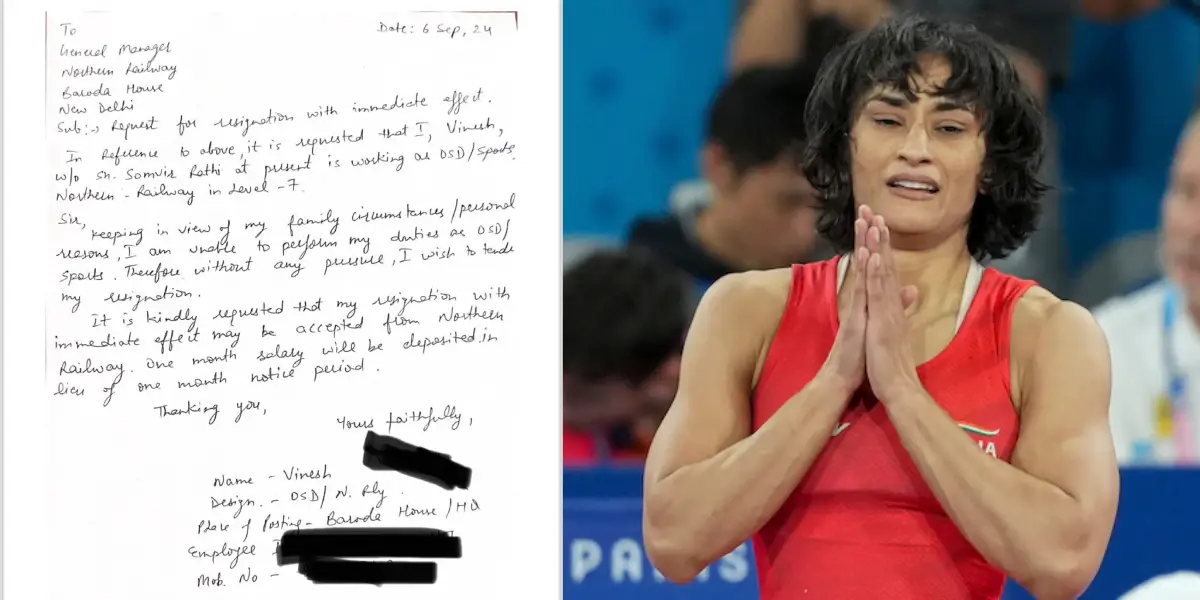 To
Date: 6 Sep, 24
General Manager
Northern Railway
Baroda House
New Delhi
Sub:-> Request for resignation with immediate effect.
In Reference to above, it is requested that I, Vinesh,
w/o Sh. Somvir Rathi at present is working as OSD/Sports
Northern-Railway in Level-7.
Sir,
keeping in view of my family circumstances/personal
reasons, I am unable to perform my duties as OSD/
Sports. Therefore without any pressure, I wish to tende
my resignation.
It is kindly requested that my resignation with
immediate effect may be accepted from Northern
Railway. One month salary will be deposited in
lieu of one month notice period.
Thanking you,
Yours faithfully,
Name - Vinesh
Design. - OSD/ N. Rly.
Place of Posting - Baroda House/HQ
Employee
Mob. No -
IA
PARIS